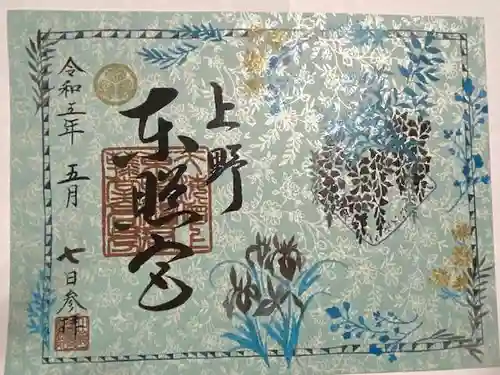 上野
東照宮
令和五年 五月 七日参拝